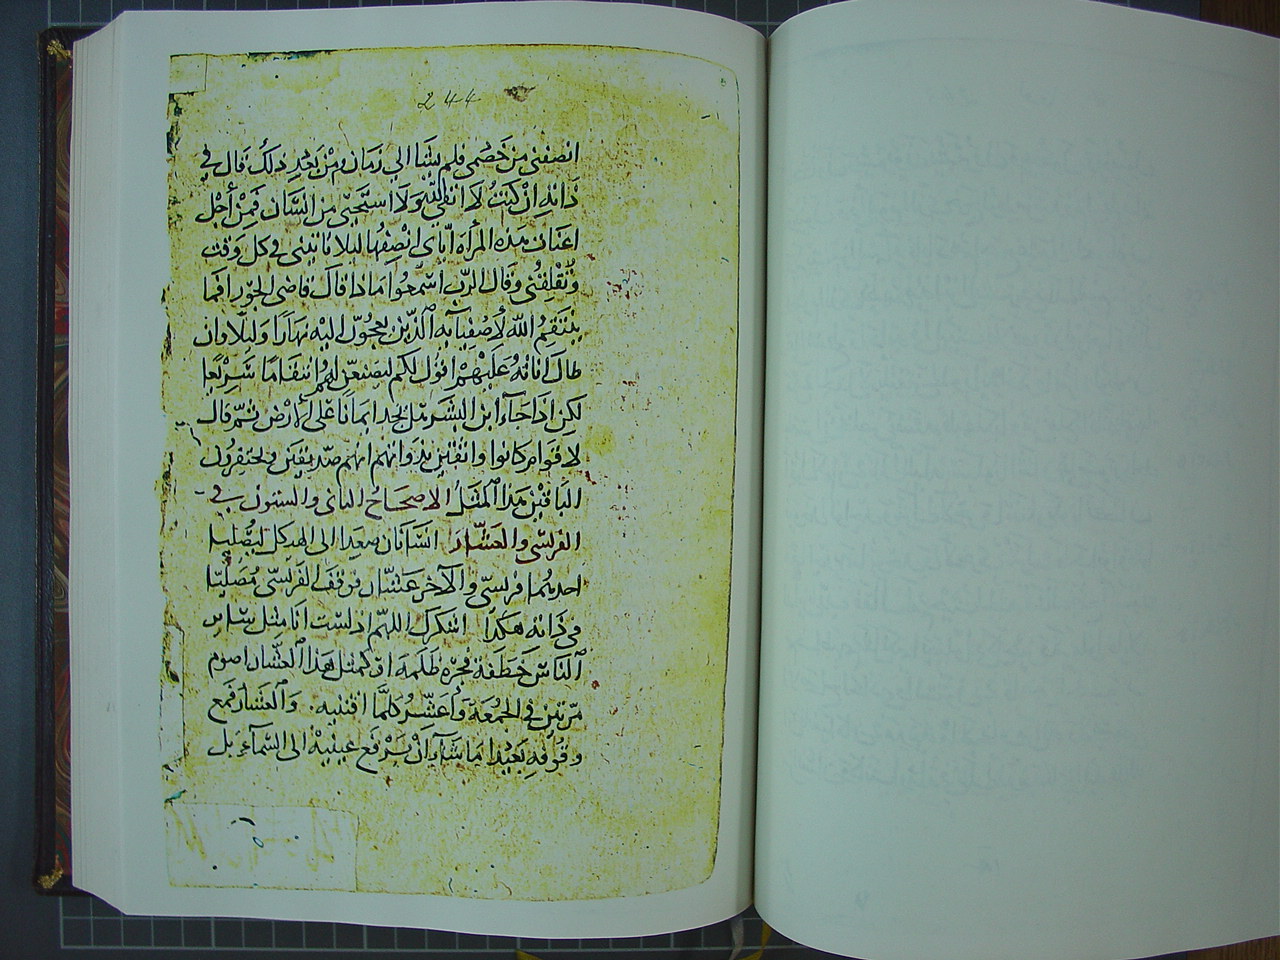 244
انصفني من خصمي فلم يشا الى زمان ومن بعد ذلك قال في
ذاته ان كنت لا اتقي الله ولا استحيي من انسان فمن أجل
اعنات هذه المرأه اياي انصفها ليلا تاتيني في كل وقت
وتقلقني وقال الرب اسمعوا ماذا قال قاضي الجور افما
ينتقم الله لأصفيآيه الذين يعجون اليه نهارًا وليلًا وان
طال اناته عليهم اقول لكم ليصنعن لهم انتقامًا سريعًا
لكن اذا جاء ابن البشر هل يجد ايمانًا على الارض ثم قال
لاقوام كانوا واثقين بذواتهم انهم صديقين ويحتقرون
الباقين هذا المثل الاصحاح الثاني والستون في
الفريسي والعشار انسانان صعدا الى الهيكل ليصليا
احدهما فريسي والآخر عشار فوقف الفريسي مصليا
في ذاته هكذا اشكرك اللهم اذ لست انا مثل ساير
الناس خطفة فجره ظلمة او كمثل هذا العشار اصوم
مرتين في الجمعة وأعشر كلما اقتنيه. والعشار فمع
وقوفه بعيدا ما شاء ان يرفع عينيه الى السماء بل